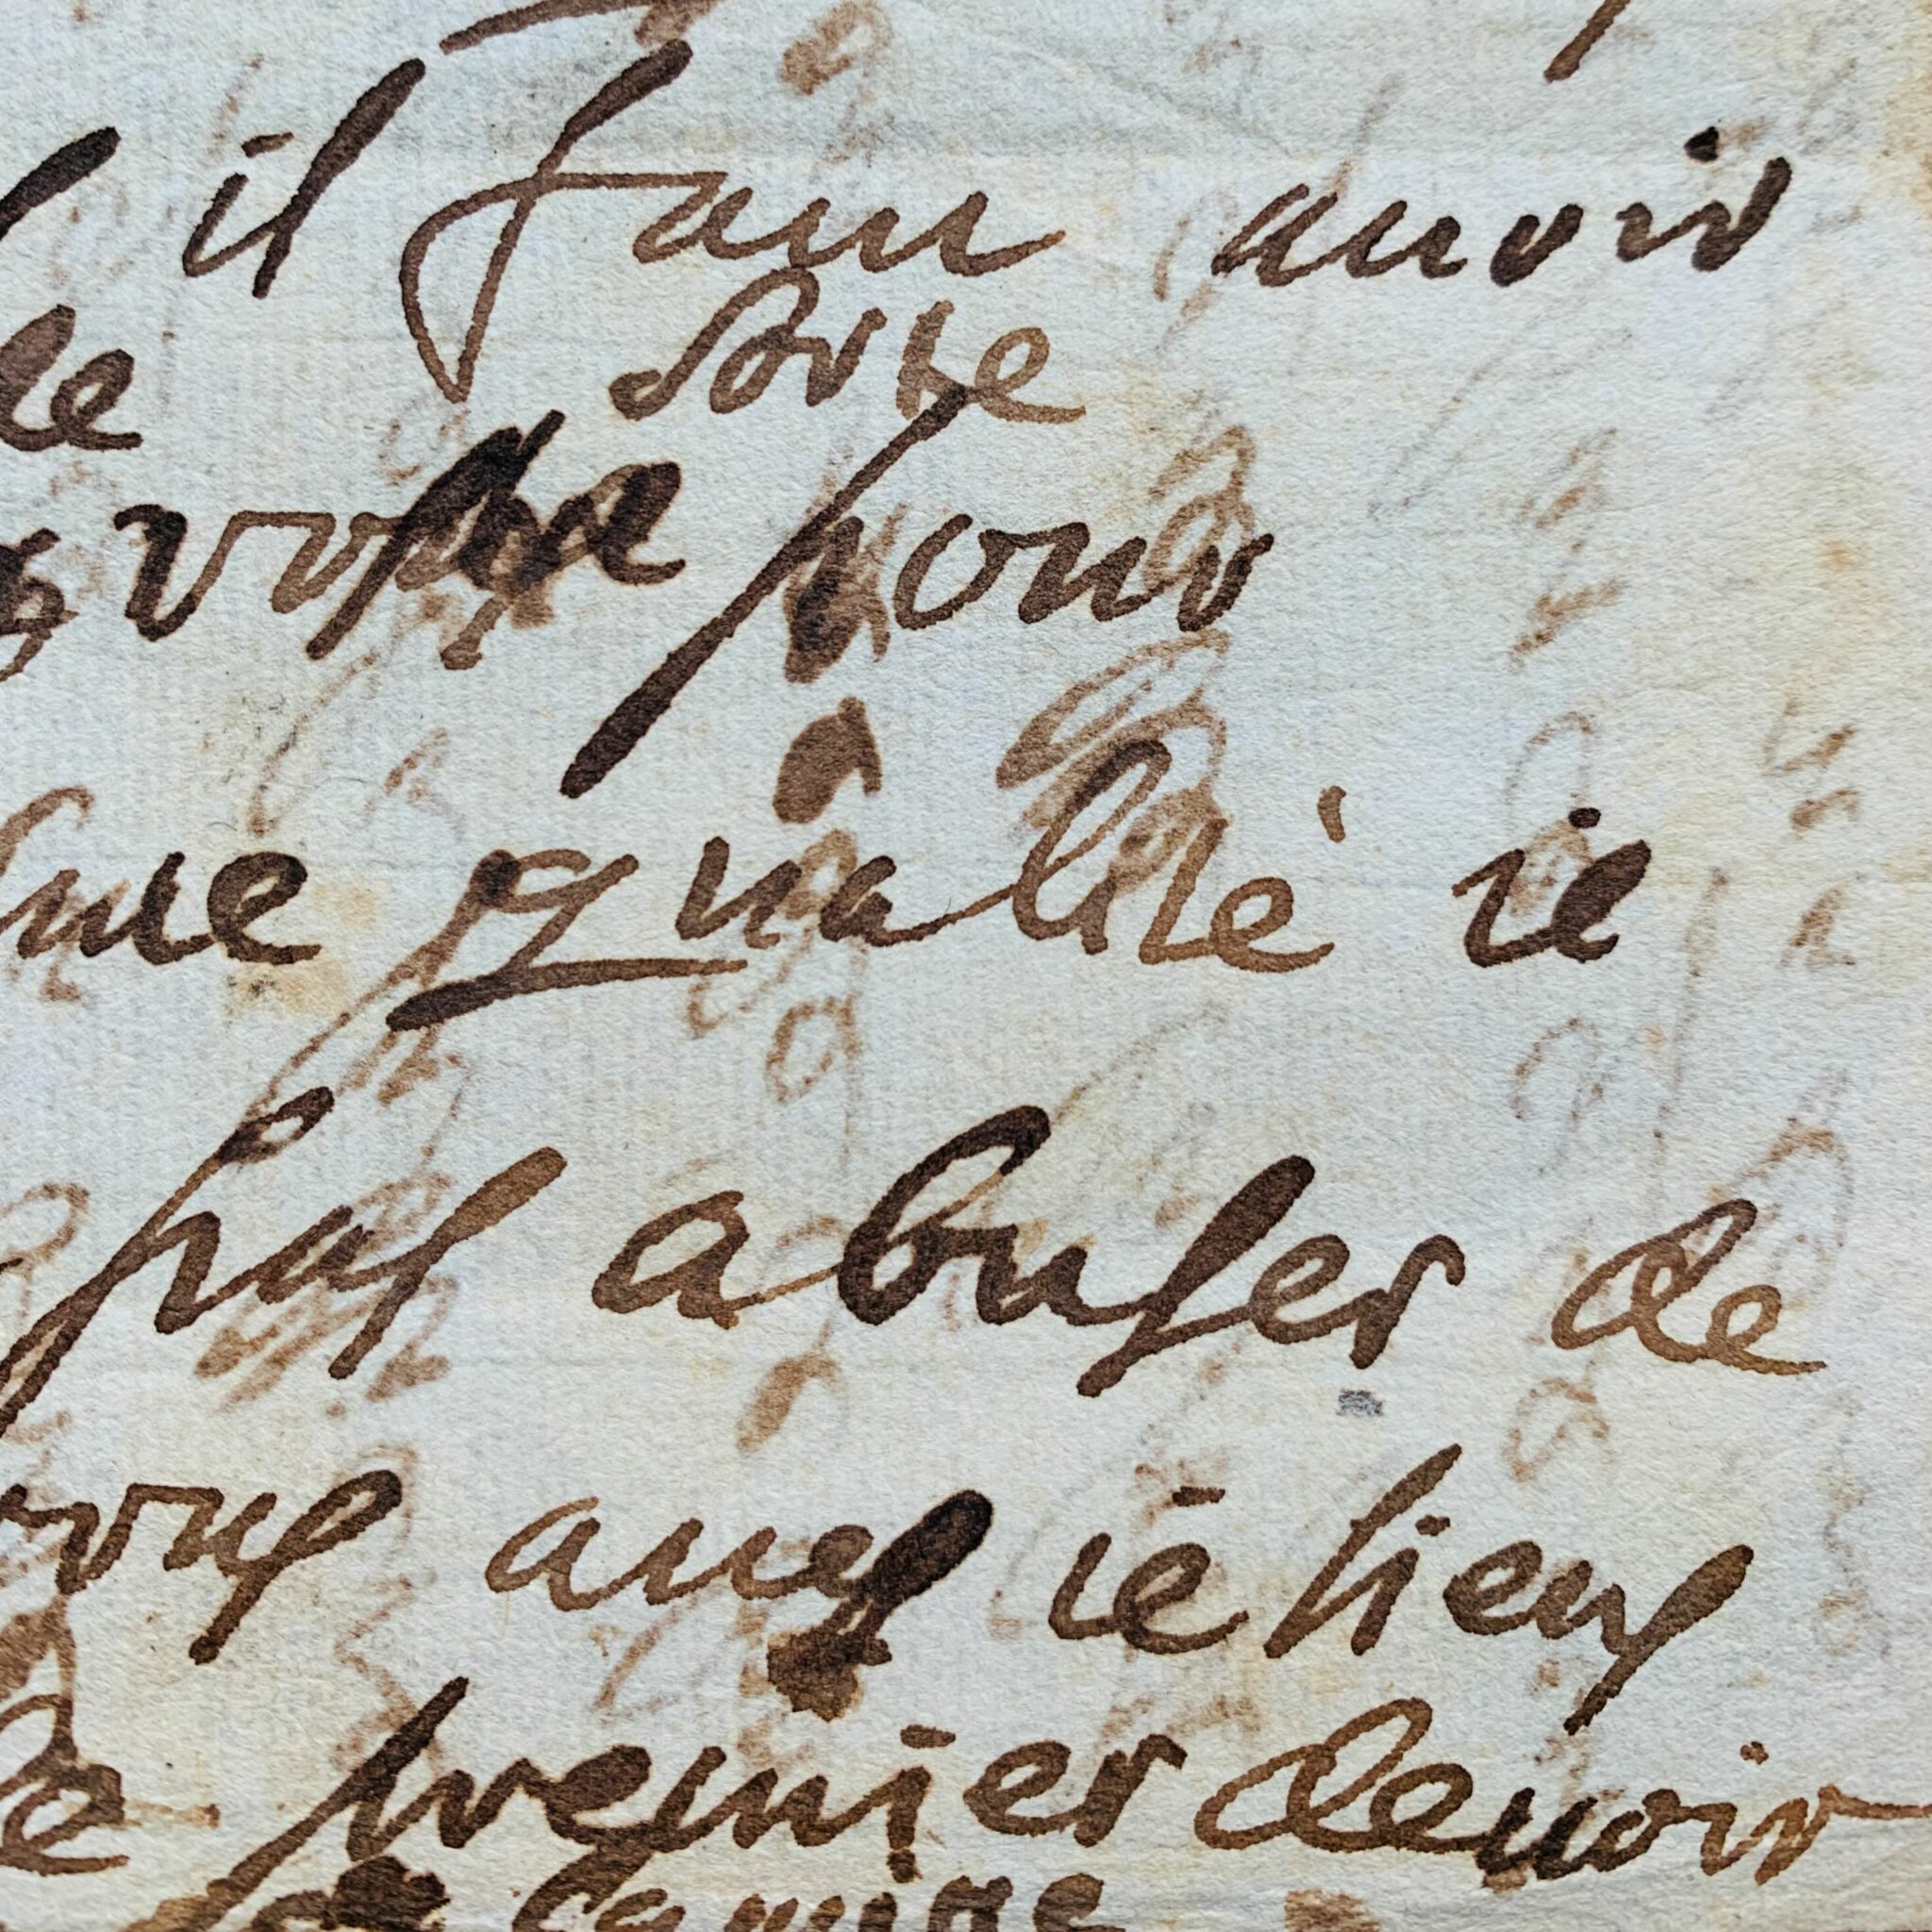 il faut auoir
le sorte
votre pour
qualité ie
pas abuser de
vous aues ie tiens
premier deuoir